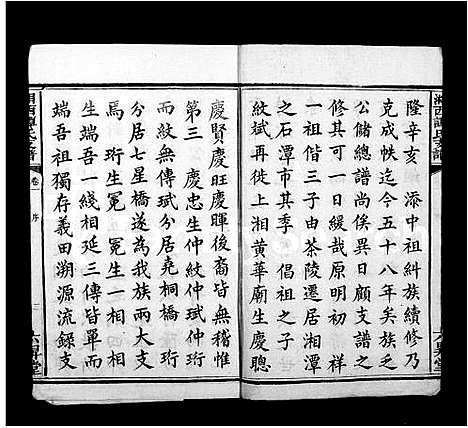 隆辛亥　添中祖糾族續修乃
克成帙迄今五十八年矣族乏
公儲總譜尚俟異日顧支譜之
修其可一日緩哉原明初　祥
一祖偕三子由茶陵遷居湘潭
之石潭市其季　倡祖之子
紋斌再徙上湘黄華廟生慶聰
慶賢慶旺慶暉後裔皆無稽惟
第三　慶忠生仲紋仲斌仲珩
而紋無傳斌分居堯桐橋　珩
分居七星橋遂為我族兩大支
焉　珩生冕　冕生一相四相
生端吾一綫相延三傳皆單而
端吾祖獨存義田溯源流錄支
卷一　序
六昇堂